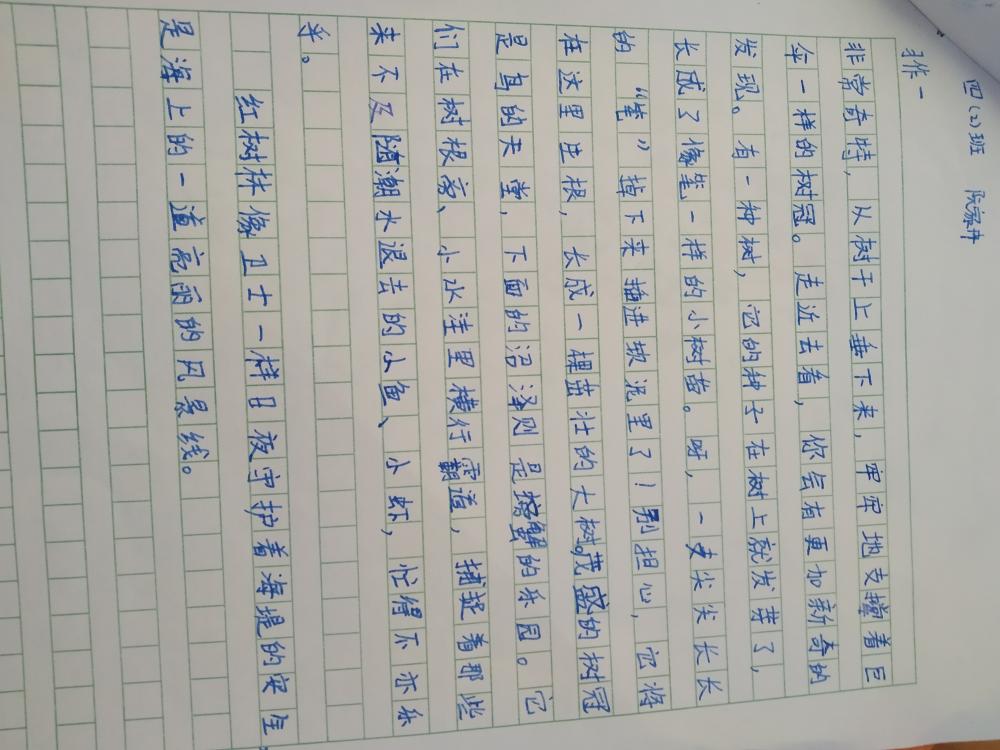 四(2)班 阮家卉
习作一
非常奇特，从树干上垂下来，牢牢地支撑着巨
伞一样的树冠。走近去看，你会有更加新奇的
发现。有一种树，它的种子在树上就发芽了，
长成了像笔一样的小树苗。呀，一支尖尖长长
的“笔”掉下来插进软泥里了！别担心，它将
在这里生根，长成一棵茁壮的大树。茂盛的树冠
是鸟的天堂，下面的沼泽则是螃蟹的乐园。它
们在树根旁、小水洼里横行霸道，捕捉着那些
来不及随潮水退去的小鱼、小虾，忙得不亦乐
乎。
红树林像卫士一样日夜守护着海堤的安全
是海上的一道亮丽的风景线。